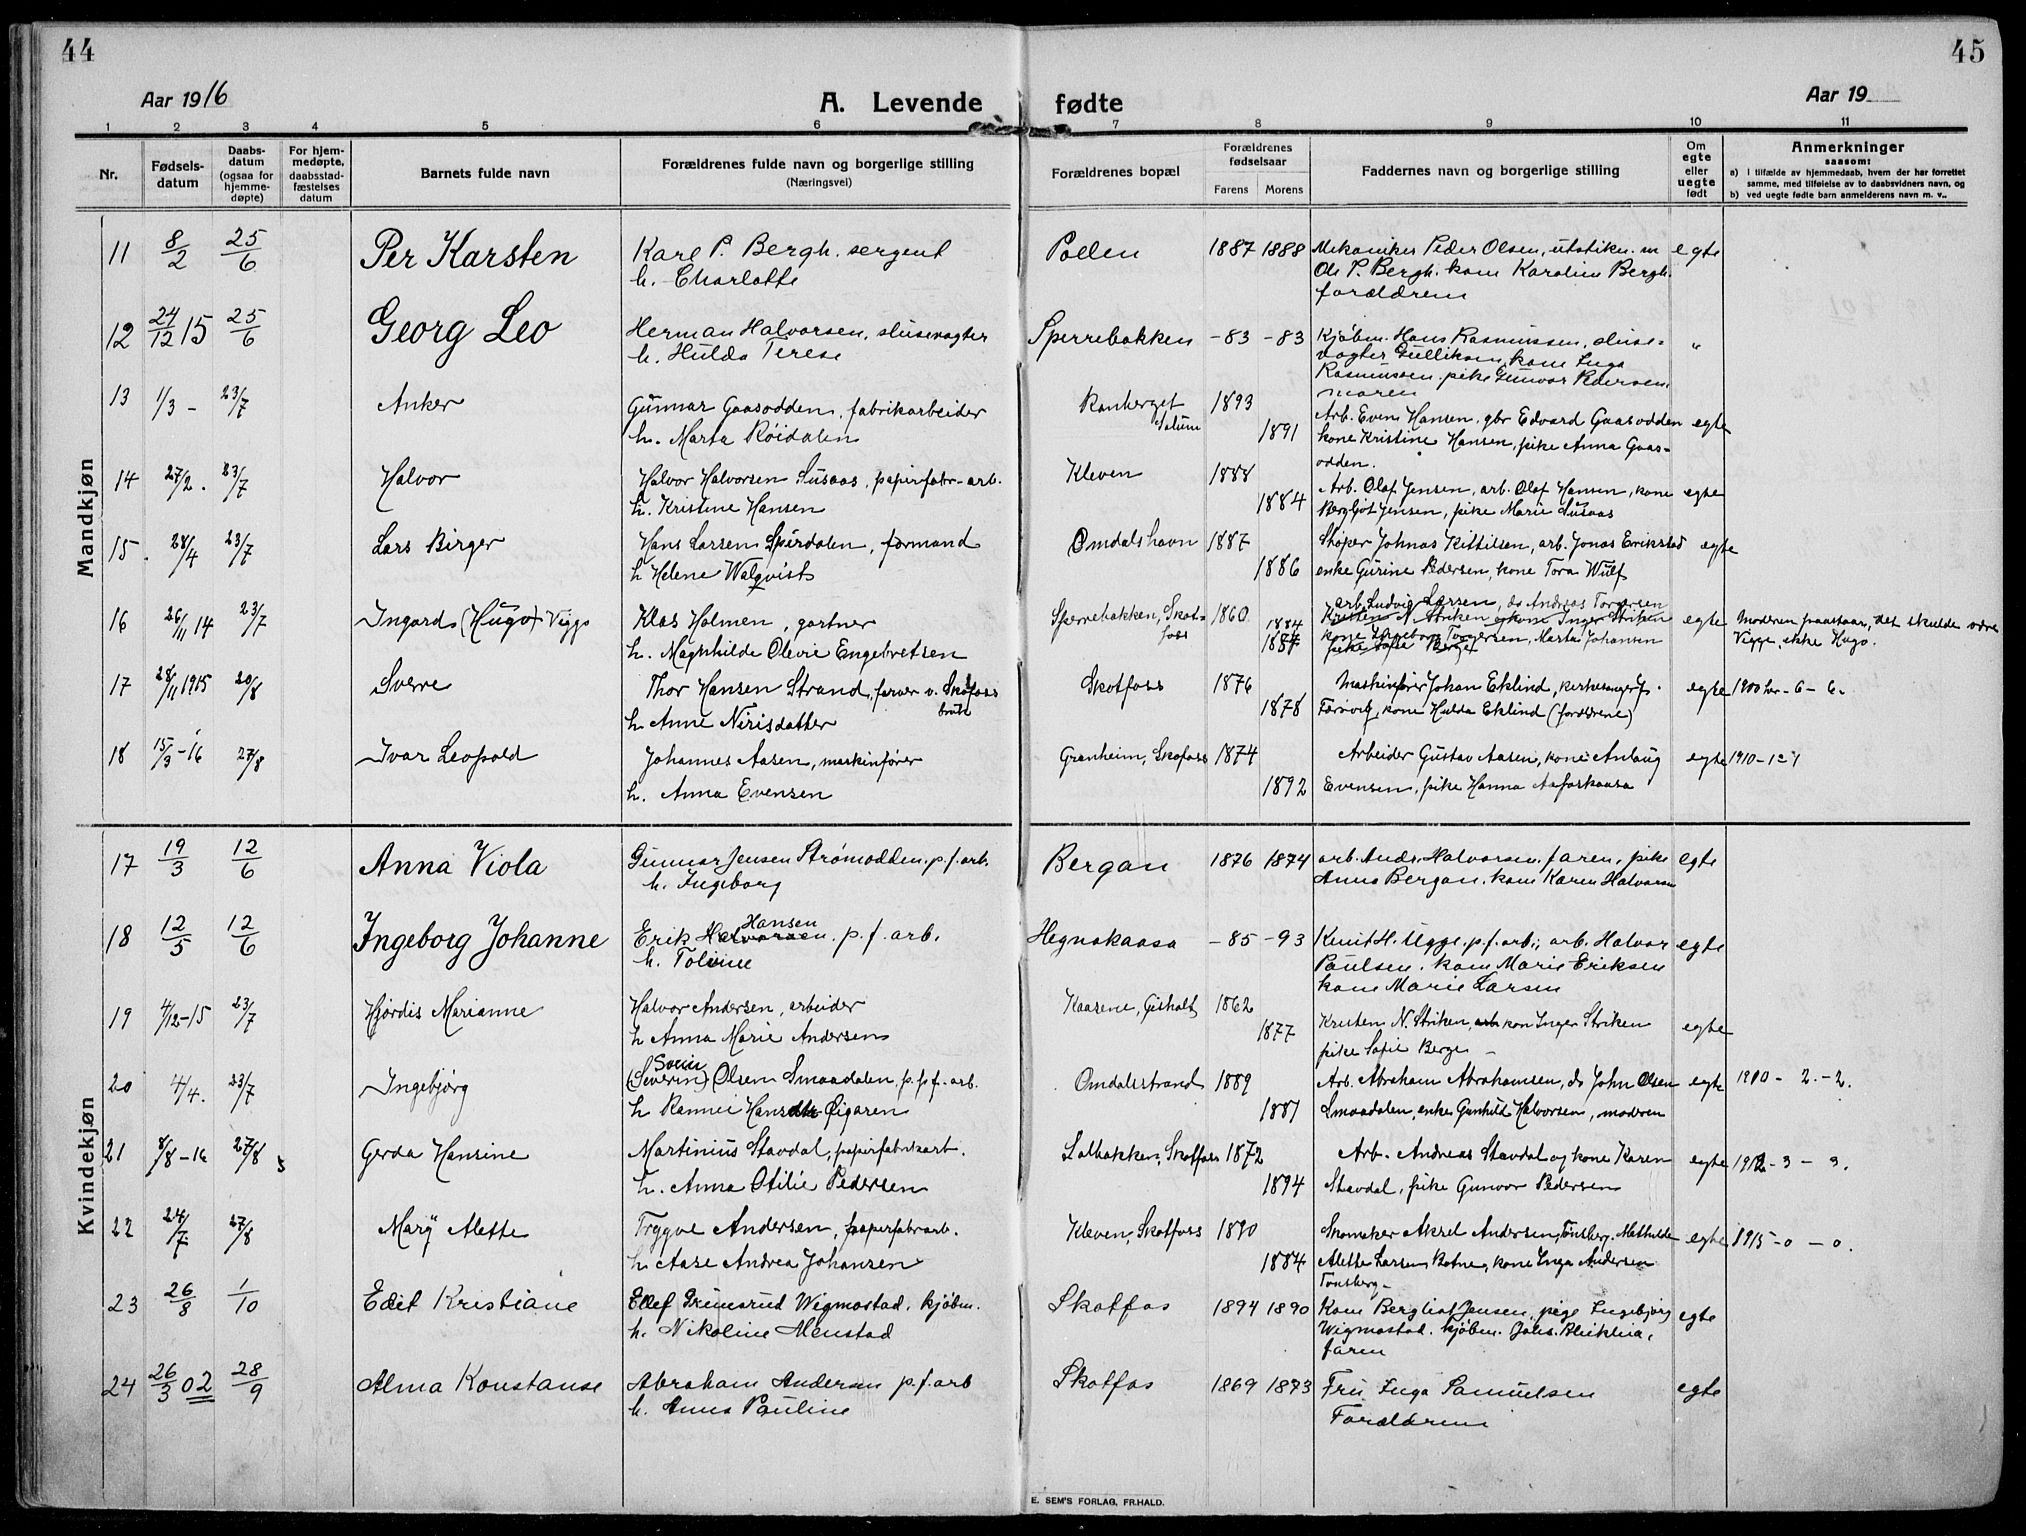 44
45
Aar 1916
A. Levende fødte
Aar 19
1 2 3 4 5 6 7 8 9 10 11
Nr.
Fødsels-
datum
Daabs-
datum
(ogsaa for
hjemme-
døpte)
For hjem-
medøpte,
daabsstad-
fæstelses
datum
Barnets fulde navn
Forældrenes fulde navn og borgerlige stilling
(Næringsvei)
Forældrenes bopæl
Forældrenes
fødselsaar
Farens Morens
Faddernes navn og borgerlige stilling
Om
egte
eller
uegte
født
Anmerkninger
saasom:
a) I tilfælde av hjemmedaab, hvem der har forrettet
samme, med tilføielse av to daabsvidners navn, og
b) ved uegte fødte barn anmelderens navn m. v..
Mandkjøn
11 8/2 25/6 Per Karsten Karl P. Bergh. sergent Pollen 1887 1888 Mekaniker Peder Olsen, egte
h. Charlotte Ole P. Bergh. kone Karoline Bergh.
forældrene
12 24/12 15 25/6 Georg Leo Herman Halvorsen, slusevogter Sperrebakken -83 -83 Kjøbm. Hans Rasmussen, sluse- "
h. Hulda Terese vogter Gulliksen, kone Inga
Rasmussen. pike Gunvor Pedersen
moren
13 1/3 - 23/7 Anker Gunnar Gaasodden, fabrikarbeider 1893
h. Marta Røidalen 1891 Arb. Even Hansen, gbr Edvard Gaasodden egte
kone Kristine Hansen, pike Anna Gaas-
odden.
14 27/2. 23/7 Halvor Halvor Halvorsen Susaas, papirfabr-arb. Kleven 1888
h. Kristine Hansen 1884 Arb. Olaf Jensen, arb. Olaf Hansen, kone egte
Bergljot Jensen, pike Marie Susaas
15. 28/4 23/7 Lars Birger Hans Larsen Spirdalen, formand Omdalshavn 1887 Skoper Johnas Kittilsen, arb. Jonas Erikstad egte
h Helene Walqvist 1886 enke Gurine Pedersen, kone Tora Wulf
16 26/11 14 23/7 Ingard (Hugo) Viggo Klas Holmen, gartner Sperrebakken, Skot- 1860 arb. Ludvig Larsen, do Andreas Torgersen
foss 1884 Kristen N. Striken kone Inger Striken egte Moderen paastaar, det skulde være
h. Magnhilde Olevie Engebretsen 1887 kone Ingeborg Torgersen, Marta Johansen Viggo, ikke Hugo.
pike Sofie Berge
17 28/11 1915 20/8 Sverre Thor Hansen Strand, farver v. Skotfoss Skotfoss 1876 Maskinfører Johan Eklind, kirkesanger J. egte 1900 - 6 - 6.
bruk
h. Anne Nirisdatter 1878 kone Hulda Eklind (forældrene)
18 15/3-16 27/8 Ivar Leopold Johannes Aasen, maskinfører Granheim, Skofoss 1874 Arbeider Gustav Aasen, kone Anlaug egte 1910-1-1
h. Anna Evensen 1892 Evensen, pike Hanna Aafoskaasa
Kvindekjøn
17 19/3 12/6 Anna Viola Gunnar Jensen Strømodden. p.f.arb. Bergan 1876 1874 arb. Ands. Halvorsen. faren, pike egte
h. Ingeborg Anna Bergan. kone Karen Halvorsen
18 12/5 12/6 Ingeborg Johanne Erik Halvorsen Hansen. p.f.arb. Hegnakaasa -85 -93 Knut H. Ugge. p.f.arb., arb. Halvor egte
h. Toline Paulsen. kone Marie Eriksen
kone Marie Larsen
19 4/12-15 23/7 Hjördis Marianne Halvor Andersen, arbeider Kaasene, Gisholt 1862
h Anna Marie Andersen 1877 Kristen N. Striken, arb kon Inger Striken egte
pike Sofie Berge
20 4/4. 23/7 Ingebjørg (Severin) Olsen Smaadalen, p.p.f. arb. Omdalsstrand 1889 Arb. Abraham Abrahamsen, do John Olsen egte 1910 - 2. - 2.
h Rannei 1887 Smaadalen, enke Gunhild Halvorsen, moderen
21 8/8-16 27/8 Gerda Hansine Martinius Stavdal, papirfabrikarb. Lolbakken, Skotfoss 1872 Arb. Andreas Stavdal og kone Karen egte 1912 - 3 - 3.
h. Anna Otilie Pedersen 1894 Stavdal, pike Gunvor Pedersen
22 24/7 27/8 Mary Alette Trygve Andersen, papirfabrarb. Kleven, Skotfoss 1890 Skomaker Aksel Andersen, Tønsberg. Mathilde egte 1915 - 0 - 0.
h Aase Andrea Johansen 1884 Alette Larsen Botne, kone Inga Andersen
Tønsberg
23 26/8 1/10 Edit Kristiane Ellef Grimsrud Wigmostad. kjøbm. Skotfos 1894 1890 Kone Bergliot Jensen, pige Ingebjørg egte
h. Nikoline Menstad Wigmostad. kjøbm. Johs. Blekliia,
faren
24 26/3 02 28/9 Alma Konstanse Abraham Andersen p.f.arb Skotfos 1869 1873 Fru Inga Samuelsen egte
h. Anna Pauline Forældrene
E. SEM'S FORLAG, FR.HALD.